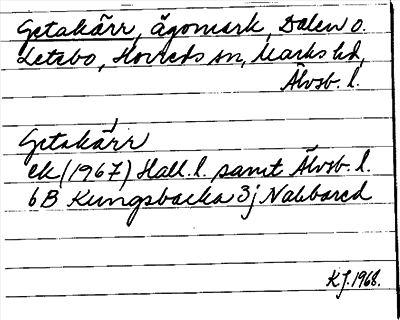 Getakärr, ägomark, Dalen o.
Letebo, Horreds sn, Marks hd,
Älvsb. l.
Getakärr
ek (1967) Hall. l. samt Älvsb. l.
6B Kungsbacka 3j Nabbared
KJ. 1968.